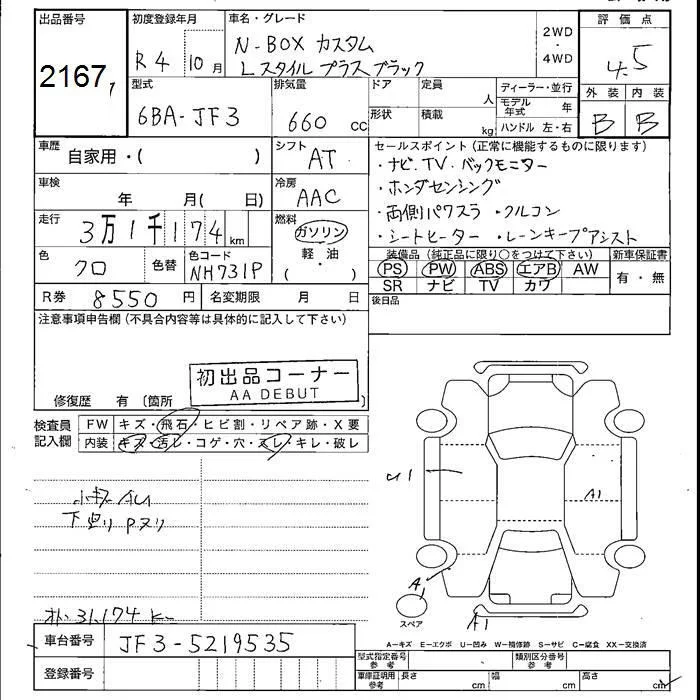 出品番号
2167
初度登録年月
R4 10月
車名・グレード
N-BOX カスタム
Lスタイル プラス ブラック
2WD
・
4WD
評価点
4.5
外装 内装
B B
型式
6BA-JF3
排気量
660 cc
ドア 定員 人
形状 積載 kg
ディーラー・並行
モデル年式 年
ハンドル 左・右
車歴
自家用・( )
シフト
AT
車検
年 月( 日)
冷房
AAC
走行
3万1千174 km
燃料
ガソリン
・
軽油
( )
色
クロ
色替
色コード
NH731P
R券 8550 円
名変期限 月 日
セールスポイント(正常に機能するものに限ります)
・ナビ.TV.バックモニター
・ホンダセンシング
・両側パワスラ ・クルコン
・シートヒーター ・レーンキープアシスト
装備品(純正品に限り○をつけて下さい)
PS PW ABS エアB AW
SR ナビ TV カワ
新車保証書
有・無
後日品
注意事項申告欄(不具合内容等は具体的に記入して下さい)
初出品コーナー
AA DEBUT
修復歴 有 〔箇所 〕
検査員記入欄
FW キズ・飛石・ヒビ割・リペア跡・X要
内装 キズ・汚レ・コゲ・穴・スレ・キレ・破レ
小キズ
下廻り Pヌリ
31,174
U1
A1
A1
A1
スペア
A−キズ E−エクボ U−凹み W−補修跡 S−サビ C−腐食 XX−交換済
車台番号 JF3-5219535
登録番号
型式指定番号 参考
類別区分番号 参考
車庫証明用 参考 長さ cm 幅 cm 高さ cm